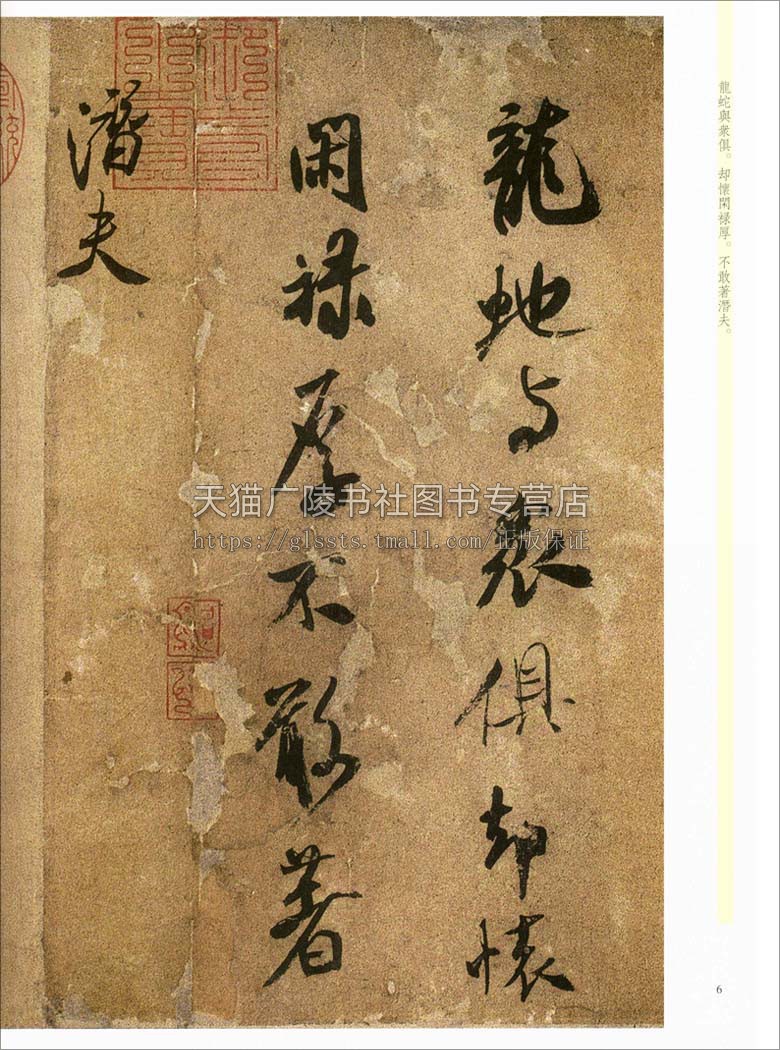 龍虵与衆俱却懐
閑禄厚不敢著
潛夫
龍蛇與衆俱。却懷閑禄厚。不敢著潛夫。
天猫广陵书社图书专营店
https://glssts.tmall.com/正版保证
6